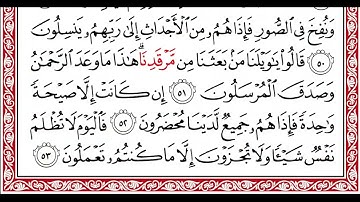 وَنُفِخَ فِي ٱلصُّورِ فَإِذَا هُم مِّنَ ٱلْأَجْدَاثِ إِلَىٰ رَبِّهِمْ يَنسِلُونَ
٥٠ قَالُوا۟ يَٰوَيْلَنَا مَنۢ بَعَثَنَا مِن مَّرْقَدِنَاۗ هَٰذَا مَا وَعَدَ ٱلرَّحْمَٰنُ
وَصَدَقَ ٱلْمُرْسَلُونَ ٥١ إِن كَانَتْ إِلَّا صَيْحَةً
وَٰحِدَةً فَإِذَا هُمْ جَمِيعٌ لَّدَيْنَا مُحْضَرُونَ ٥٢ فَٱلْيَوْمَ لَا تُظْلَمُ
نَفْسٌ شَيْـًٔا وَلَا تُجْزَوْنَ إِلَّا مَا كُنتُمْ تَعْمَلُونَ ٥٣